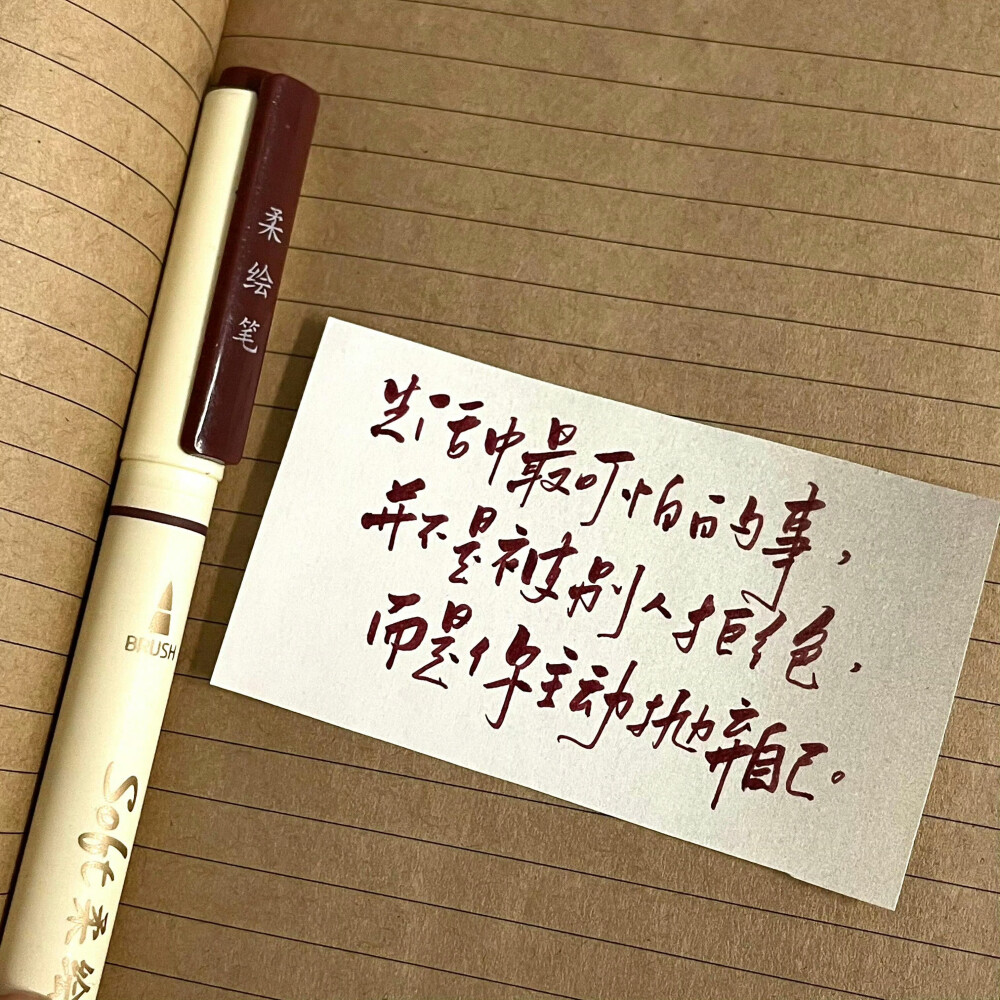 柔绘笔
BRUSH
Soft柔绘
生活中最可怕的事，
并不是被别人拒绝，
而是你主动抛弃自己。